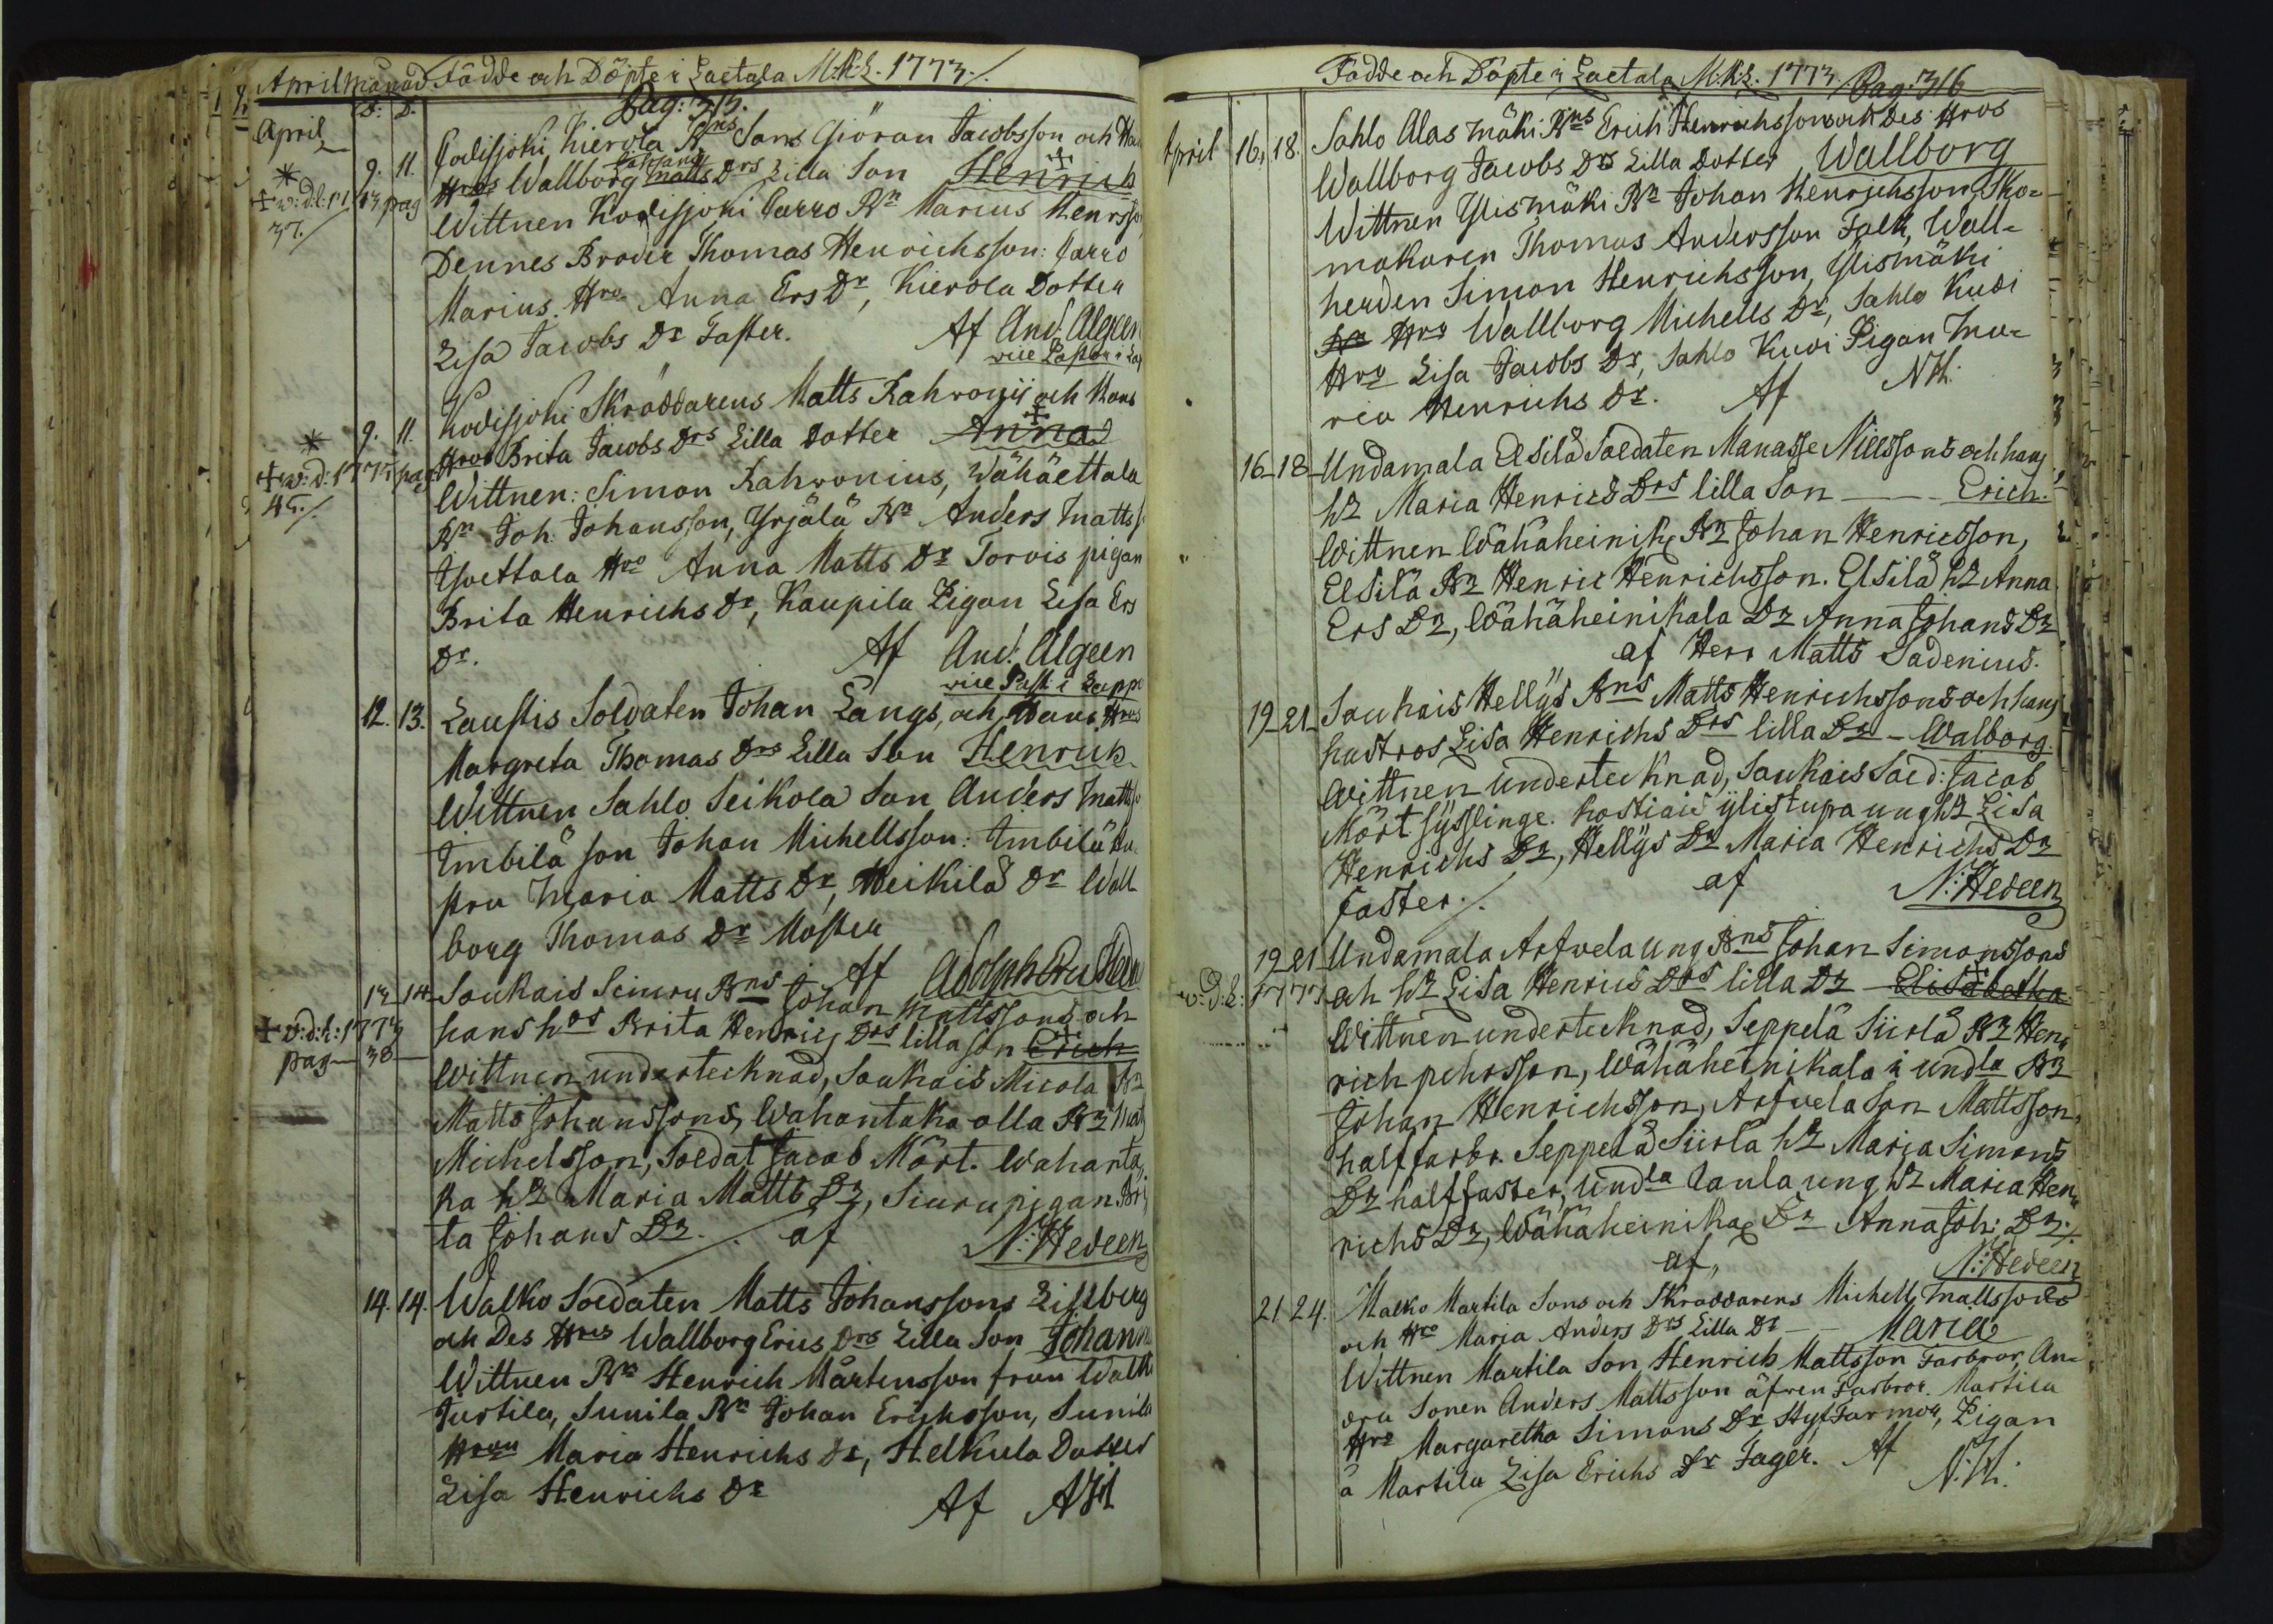 April Månad Födde och Döpte i Laetala M:K:L. 1773./.
Pag: 315.
F: D.
April
9. 11. Kodisjoki Kierola Rns Sons Giöran Jacobsson och
Hros Wallborg Matts Johans Drs Lilla Son Henrich
Wittnen Kodisjoki Carro Rn Marcus Henrsson
Dennes Broder Thomas Henrichsson: Carro
Marcus Hro Anna Ers Dr, Kierola Dotter
Lisa Jacobs Dr Faster. Af And. Algeen
vice Pastor i
37./
9. 11. Kodisjoki Skräddarens Matts Rahvonij och Hans
Hros Brita Jacobs Drs Lilla Dotter Anna
Wittnen: Simon Rahvonius, Wähäettala
Rn Joh. Johansson, Yrjälä Rn Anders Matts
Isoettala Hro Anna Matts Dr Torvis pigan
Brita Henrichs Dr, Kaupila Pigan Lisa Ers
Dr. Af And. Algeen
vice Past. i Lappi
w:d: 1775 pag
45./.
12. 13. Laustis Soldaten Johan Langs, och Hans Hros
Margreta Thomas Drs Lilla Son Henrich
Wittnen Sahlo Seikola Son Anders Matts
Imbilä son Johan Michellsson: Imbilä
stru Maria Matts Dr, Heikilä Dr Wall
borg Thomas Dr Moster
Af Adolph Eru
13 14 Soukais Seuru Rns Johan Mattssons och
hans hos Brita Henrics Drs lilla son Erich
Wittnen undertecknad, Soukais Micola Rn
Matts Johanssons, Wahantaka olla Rn Mat
Michelsson, Soldat Jacob Mört. Wahanta
ka hu Maria Matts Dr, Seuru pigan Bri
ta Johans Dr ./. af N: Hedeen
w:d:h: 1773
pag 38
14. 14. Walko Soldaten Matts Johanssons Lillberg
och Des Hros Wallborg Erics Drs Lilla Son Johann
Wittnen Rn Henrich Mårtensson från Walko
Justila, Sunila Rn Johan Erichsson, Sunila
Hrun Maria Henrichs Dr, Helkula Dotter
Lisa Henrichs Dr Af
Födde och Döpte i Laetala M:K:L. 1773. Pag: 316
April 16. 18. Sahlo Alas mäki Rns Erich Henrichsson och Des Hros
Wallborg Jacobs Drs Lilla Dotter Wallborg
Wittnen Ylismäki Rn Johan Henrichsson, Sko-
makaren Thomas Andersson Falk, Wall-
herden Simon Henrichsson, Ylismäki
Hro Wallborg Michells Dr, Sahlo Kuvi
Hro Lisa Jacobs Dr, Sahlo Kuvi Pigan Ma-
ria Henrichs Dr. Af NH.
16 18 Undamala Elsilä Soldaten Manasse Nielssons och hans
hu Maria Henrics Drs lilla Son Erich.
Wittnen Wähäheinik Rn Johan Henricsson,
Elsilä Rn Henric Henrichsson. Elsilä hu Anna
Ers Dr, Wähäheinikala Dr Anna Johans Dr
af Herr Matts Sadenius.
19 21 Soukais Hellÿs Rns Matts Henrichssons och hans
hustros Lisa Henrichs Drs lilla Dr Walborg.
Wittnen undertecknad, Soukais Sold: Jacob
Mört sysslinge. kostiais ÿlistupa ung hu Lisa
Henrichs Dr, Hellÿs Dr Maria Henrichs Dr
faster./. af N: Hedeen
19 21 Undamala Arfvela ung Rns Johan Simonssons
och hu Lisa Henrics Drs lilla Dr Elisabetha.
Wittnen undertecknad, Seppelä Siirlä Rn Hen
rich pehrsson, Wähäheinikala i undla Rn
Johan Henrichsson, Arfvela Son Mattsson,
half farbr. Seppelä Siirlä hu Maria Simons
Dr half faster, undla Caula ung hu Maria Hen
richs Dr, Wähäheinika Dr Anna Joh: Dr./.
af, N: Hedeen
21. 24. Malko Martila Sons och Skräddarens Michell Mattssons
och Hro Maria Anders Drs Lilla Dr Maria
Wittnen Martila Son Henrich Mattsson Farbror, An-
dra Sonen Anders Mattsson äfven Farbror. Martila
Hro Margaretha Simons Dr Styf Farmor, Pigan
å Martila Lisa Erichs Dr Fager. Af N.H.